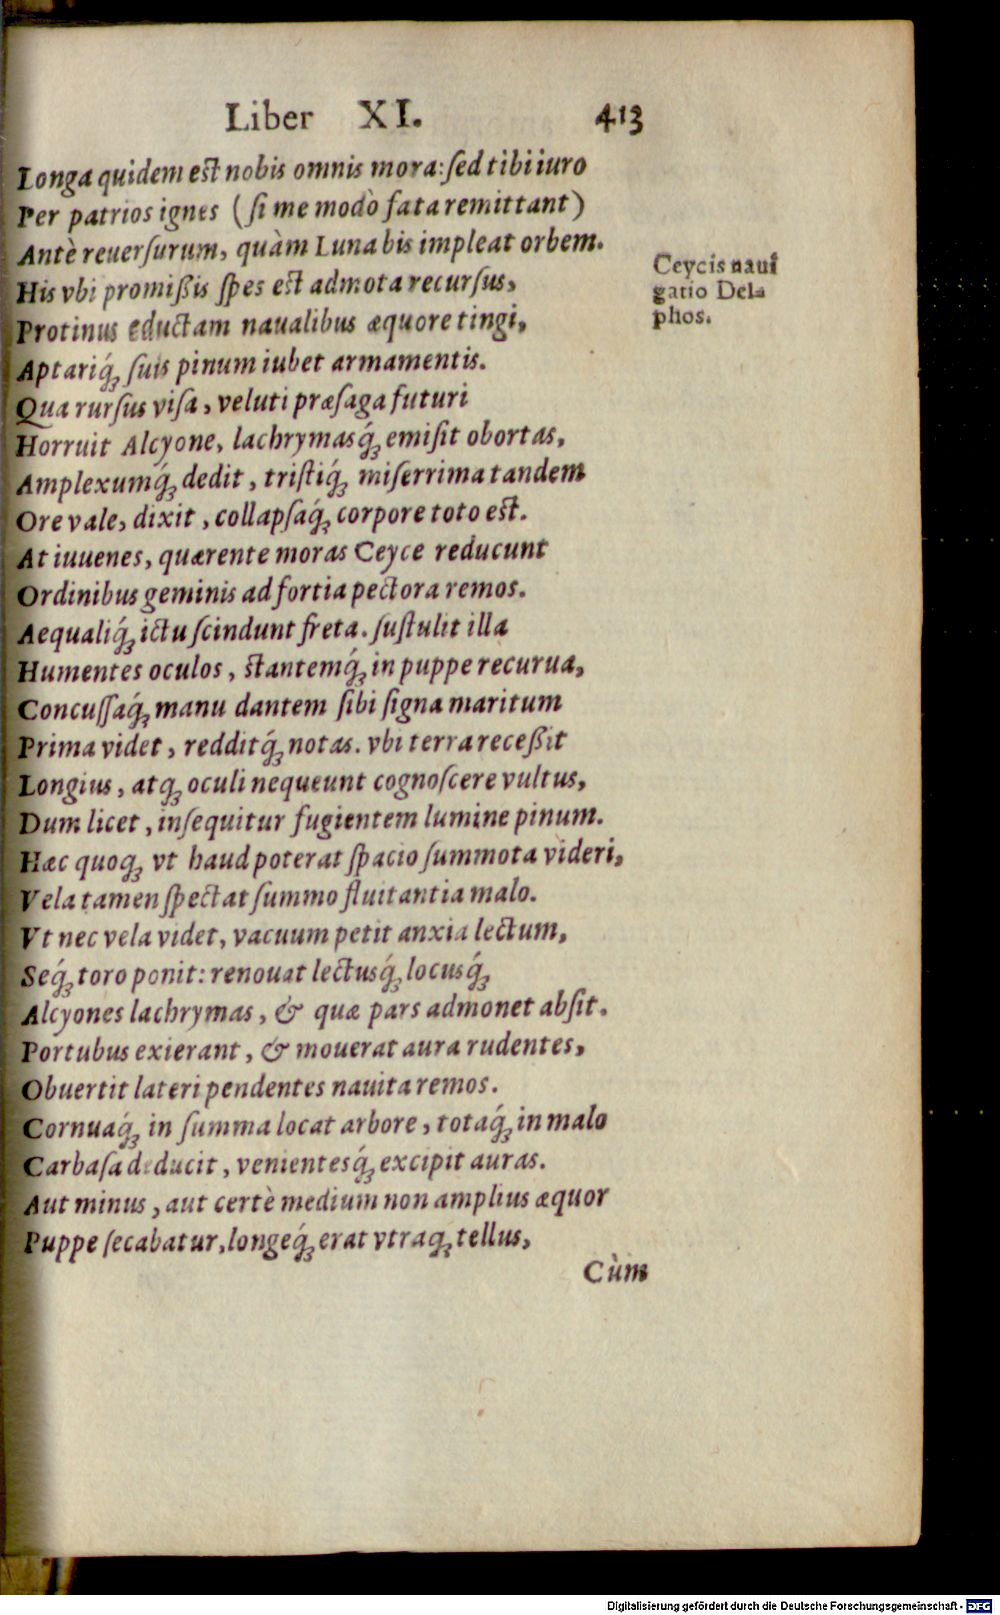 Liber XI. 413
Longa quidem est nobis omnis mora: sed tibi iuro
Per patrios ignes (si me modò fata remittant)
Antè reuersurum, quàm Luna bis impleat orbem.
His vbi promißis spes est admota recursus,
Protinus eductam naualibus æquore tingi,
Aptariq́ꝫ suis pinum iubet armamentis.
Qua rursus visa, veluti præsaga futuri
Horruit Alcyone, lachrymasq́ꝫ emisit obortas,
Amplexumq́ꝫ dedit, tristiq́ꝫ miserrima tandem
Ore vale, dixit, collapsaq́ꝫ corpore toto est.
At iuuenes, quærente moras Ceyce reducunt
Ordinibus geminis ad fortia pectora remos.
Aequaliq́ꝫ ictu scindunt freta. sustulit illa
Humentes oculos, stantemq́ꝫ in puppe recurua,
Concussaq́ꝫ manu dantem sibi signa maritum
Prima videt, redditq́ꝫ notas. vbi terra receßit
Longius, atqꝫ oculi nequeunt cognoscere vultus,
Dum licet, insequitur fugientem lumine pinum.
Hæc quoqꝫ vt haud poterat spacio summota videri,
Vela tamen spectat summo fluitantia malo.
Vt nec vela videt, vacuum petit anxia lectum,
Seq́ꝫ toro ponit: renouat lectusq́ꝫ locusq́ꝫ
Alcyones lachrymas, & quæ pars admonet absit.
Portubus exierant, & mouerat aura rudentes,
Obuertit lateri pendentes nauita remos.
Cornuaq́ꝫ in summa locat arbore, totaq́ꝫ in malo
Carbasa deducit, venientesq́ꝫ excipit auras.
Aut minus, aut certè medium non amplius æquor
Puppe secabatur, longeq́ꝫ erat vtraqꝫ tellus,
Cùm
Ceycis naui
gatio Del-
phos.
Digitalisierung gefördert durch die Deutsche Forschungsgemeinschaft - DFG